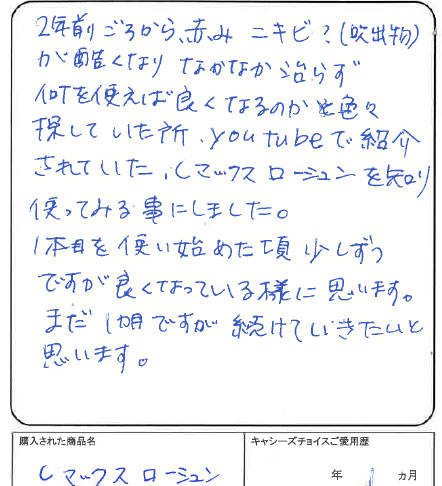 2年前ごろから、赤み ニキビ?(吹出物)
が酷くなり なかなか治らず
何を使えば良くなるのか色々
探していた所、youtubeで紹介
されていた、Cマックス ローションを知り
使ってみる事にしました。
1本目を使い始めた頃 少しずつ
ですが良くなっている様に思います。
まだ1カ月ですが 続けていきたいと
思います。
購入された商品名
キャシーズチョイスご愛用歴
Cマックス ローション
年 1 ヵ月